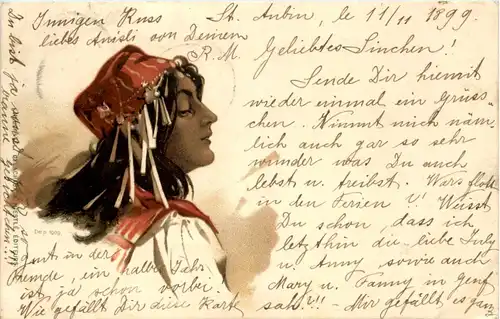 St. Aubin, le 11/11 1899.
Innigen Kuss
liebes Anisli von Deinem
R. M.
Geliebtes Sinchen!
Sende Dir hiemit
wieder einmal ein Grüss-
chen. Nimmt mich näm
lich auch gar so sehr
wunder was Du auch
lebst u. treibst. Wars flott
in den Ferien V! Weisst
Du schon, dass ich
letzthin die liebe July
u. Anny, sowie auch
Mary u. Fanny in Genf
sah?!! - Mir gefällt es ganz
gut in der
Fremde, ein halbes Jahr
ist ja schon vorbei.
Wie gefällt Dir diese Karte
Du bist ja sonst auch